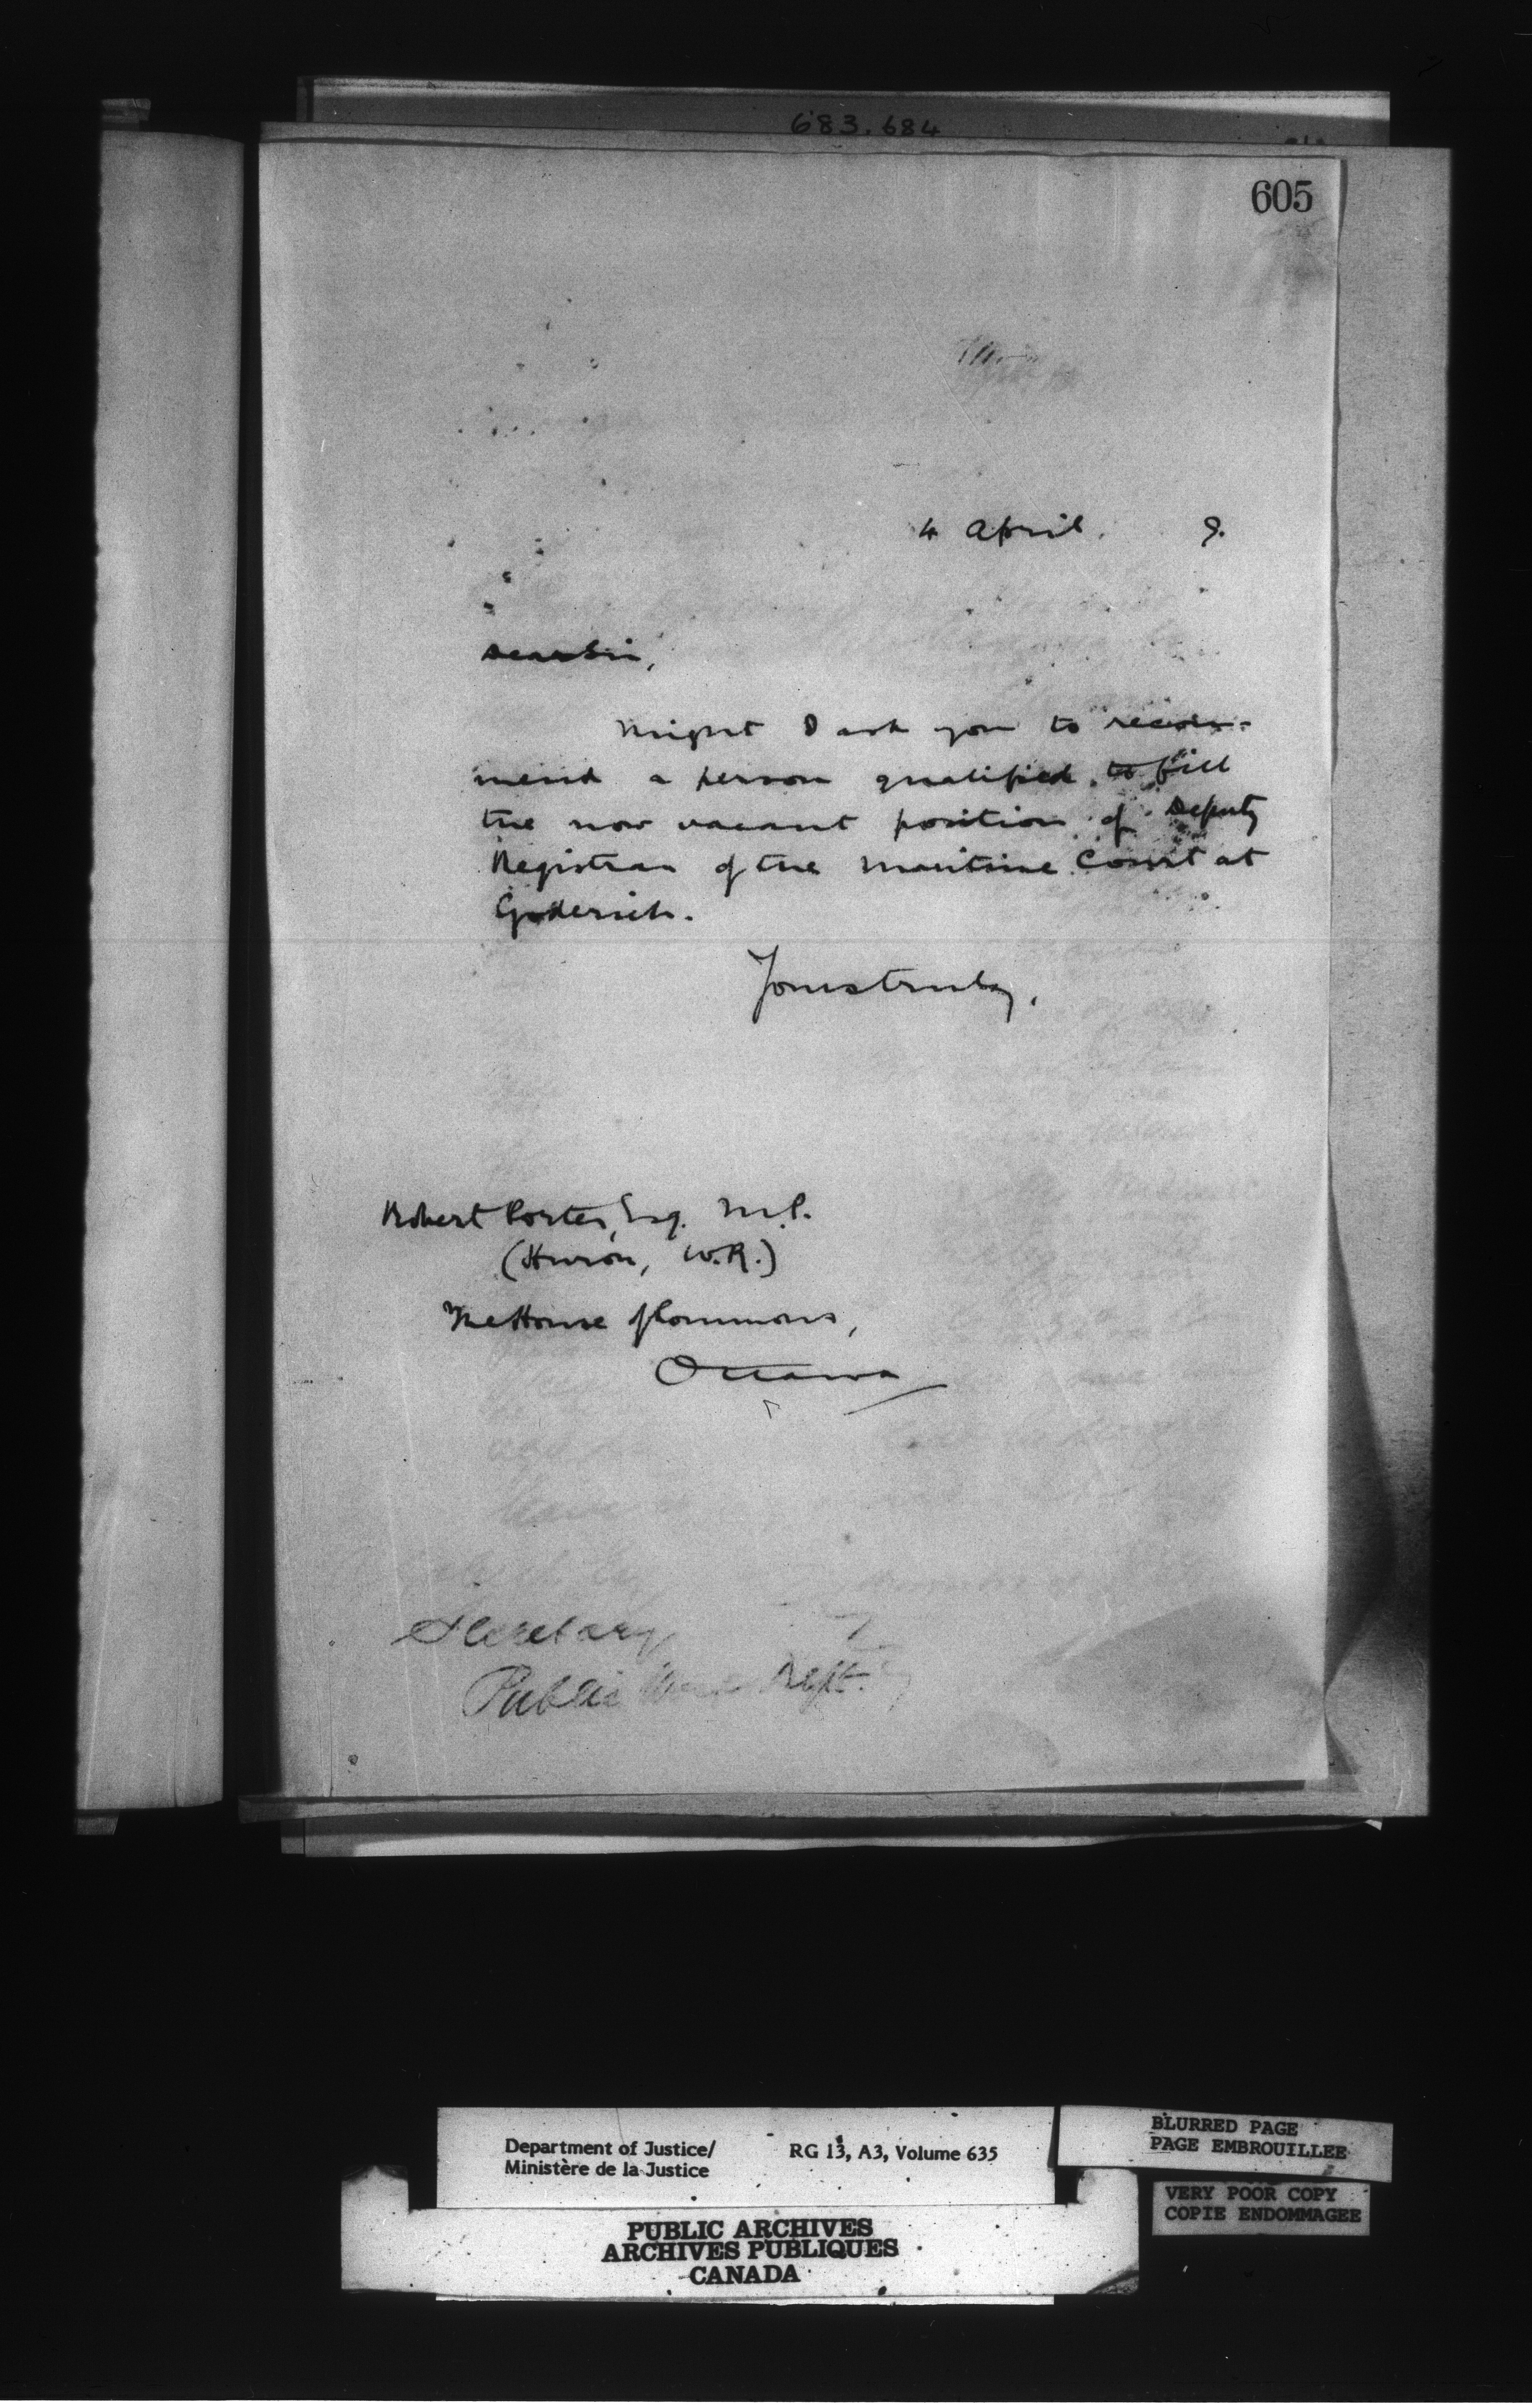 683.684
605
4 April. 9.
Dear Sir,
Might I ask you to recom-
mend a person qualified to fill
the now vacant position of Deputy
Registrar of the Maritime Court at
Goderich.
Yours truly,
Robert Porter, Esq. M.P.
(Huron, W.R.)
The House of Commons,
Ottawa
Secretary
Public Dept.
Department of Justice/
Ministère de la Justice
RG 13, A3, Volume 635
BLURRED PAGE
PAGE EMBROUILLEE
VERY POOR COPY
COPIE ENDOMMAGEE
PUBLIC ARCHIVES
ARCHIVES PUBLIQUES
CANADA